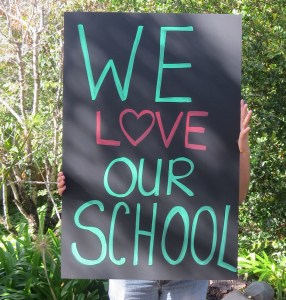 WE
LOVE
OUR
SCHOOL